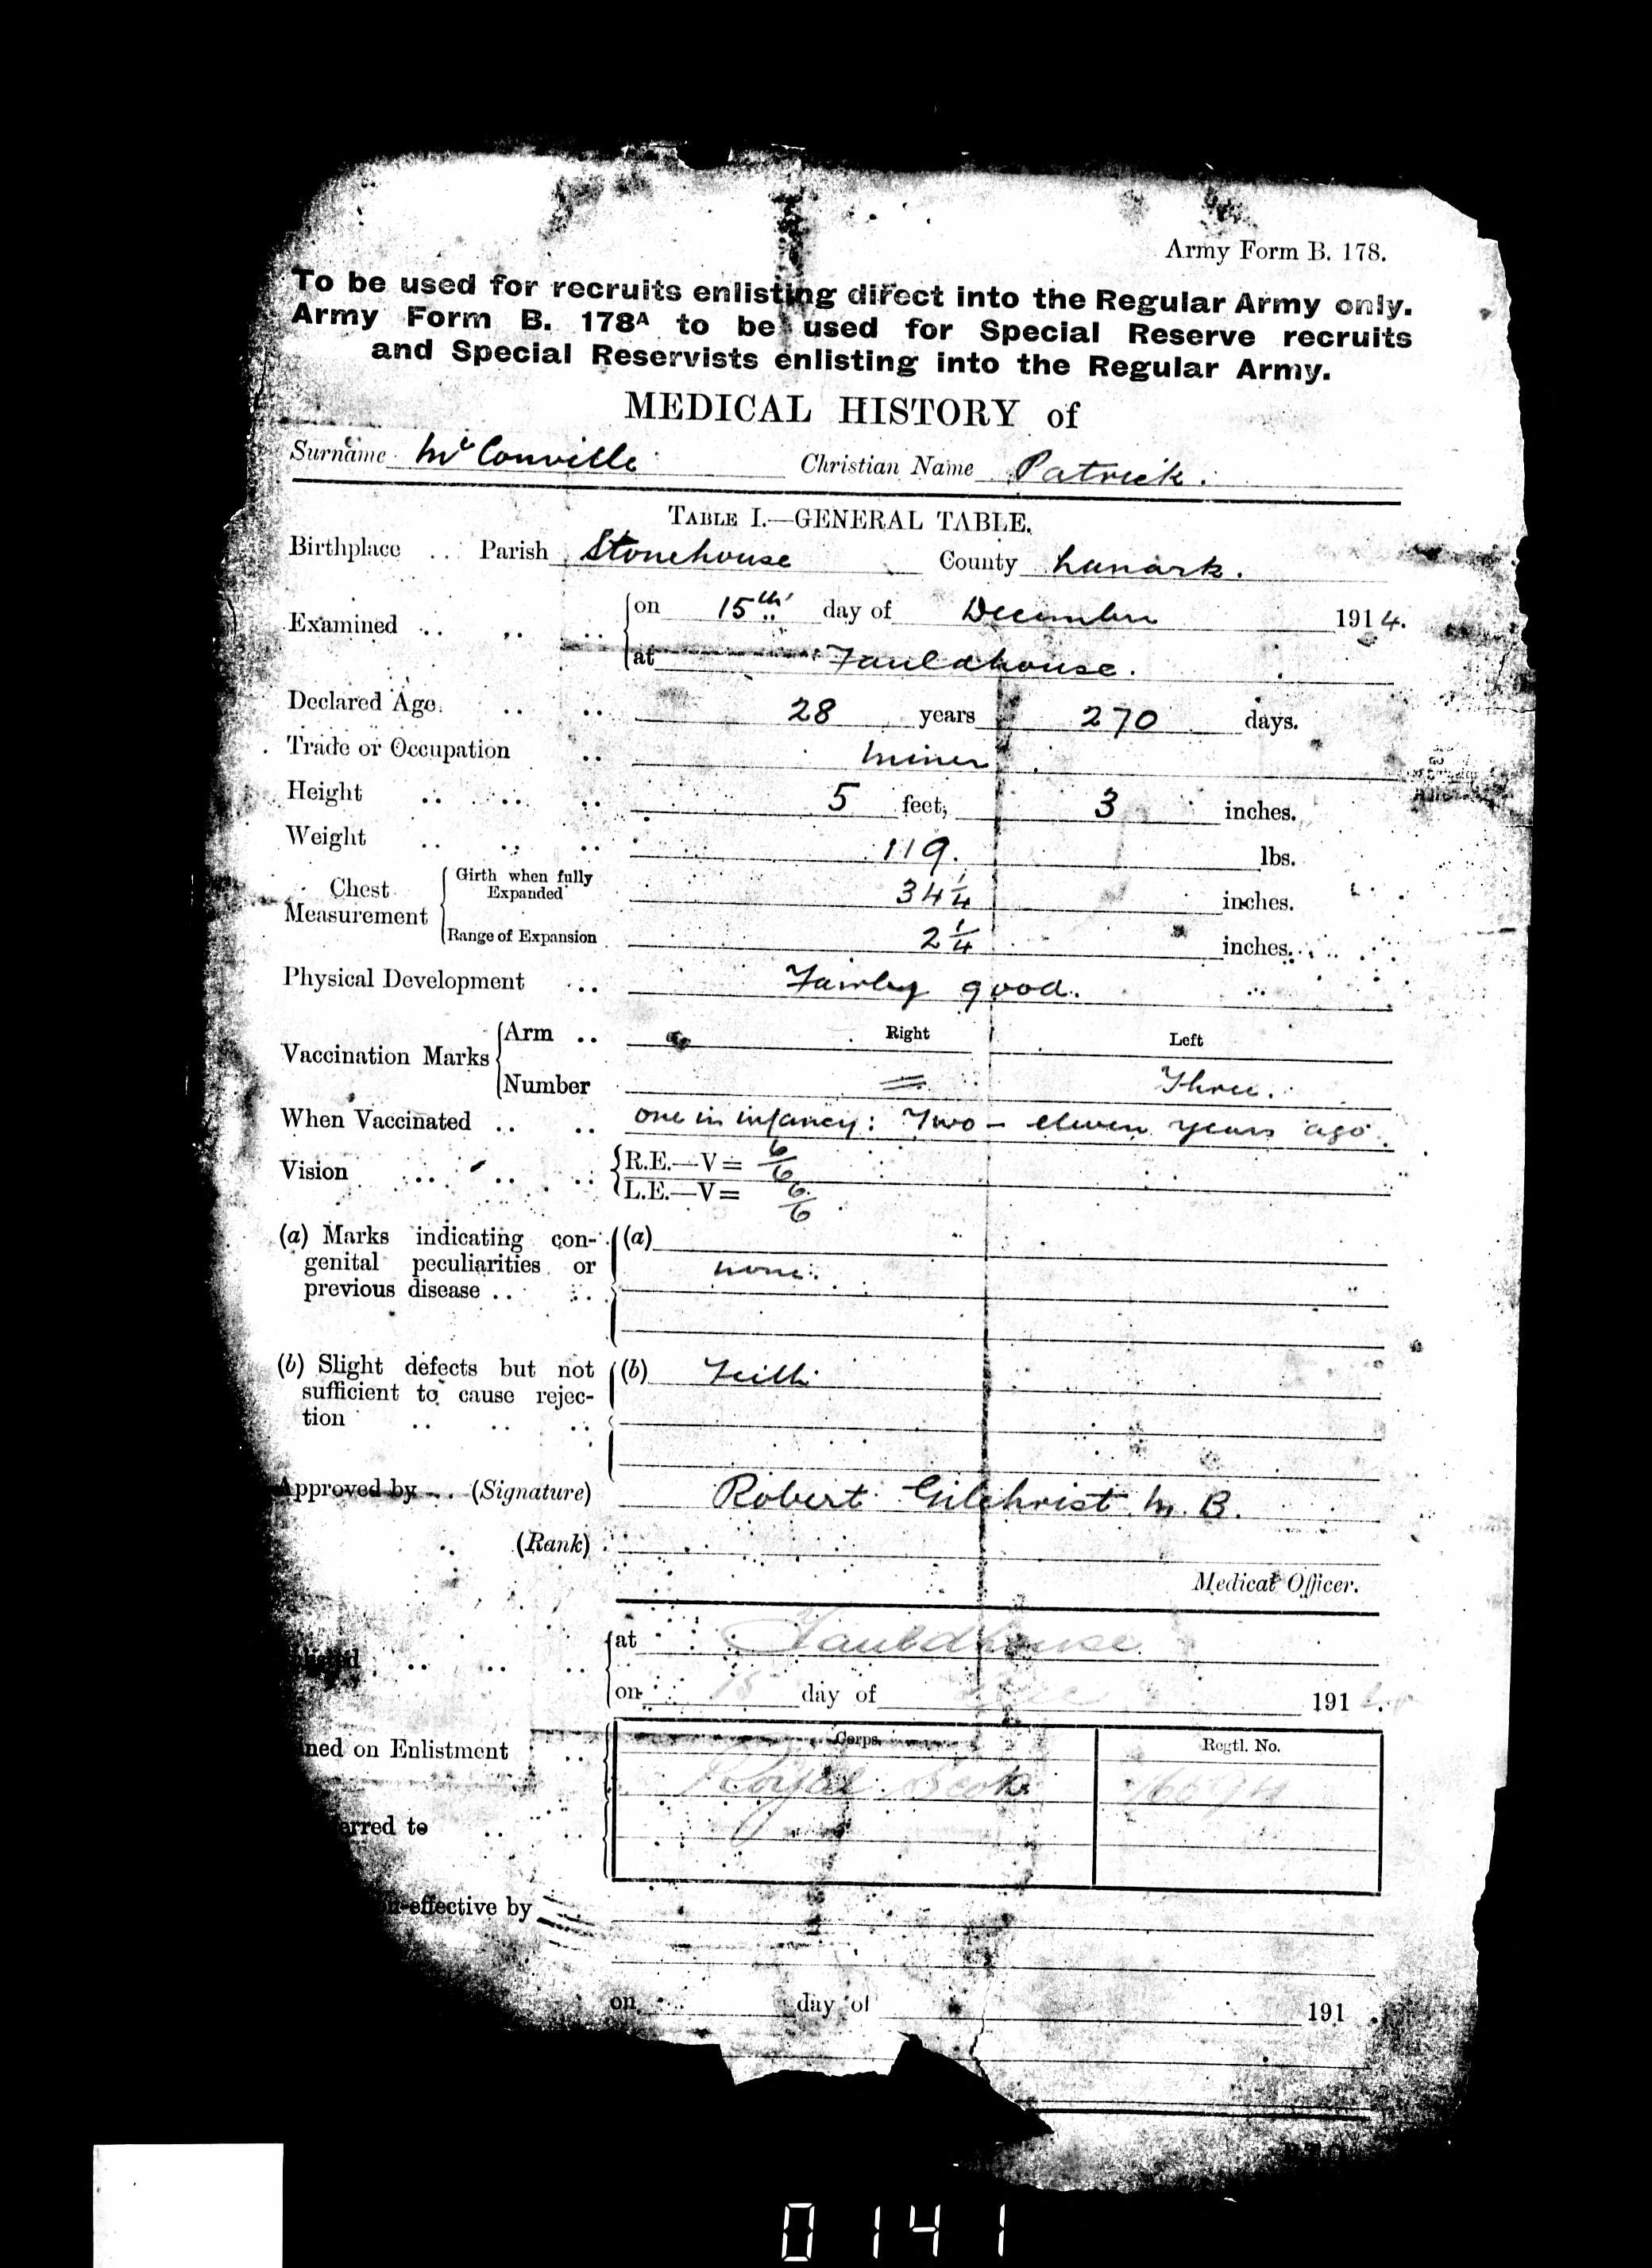 Army Form B. 178.
To be used for recruits enlisting direct into the Regular Army only.
Army Form B. 178A to be used for Special Reserve recruits
and Special Reservists enlisting into the Regular Army.
MEDICAL HISTORY of
Surname McConville Christian Name Patrick.
TABLE I.—GENERAL TABLE.
Birthplace .. Parish Stonehouse County Lanark.
Examined .. .. .. on 15th day of December 1914.
at Fauldhouse.
Declared Age. .. .. 28 years 270 days.
Trade or Occupation .. Miner
Height .. .. .. 5 feet, 3 inches.
Weight .. .. .. 119. lbs.
Chest Measurement Girth when fully Expanded 34 1/4 inches.
Range of Expansion 2 1/4 inches.
Physical Development .. Fairly good.
Vaccination Marks Arm .. Right Left
Number = Three.
When Vaccinated .. .. one in infancy: Two – eleven years ago.
Vision .. .. .. R.E.—V= 6/6
L.E.—V= 6/6
(a) Marks indicating con- (a)
genital peculiarities or none.
previous disease .. ..
(b) Slight defects but not (b) Teeth
sufficient to cause rejec-
tion .. .. ..
Approved by .. (Signature) Robert Gilchrist M.B.
(Rank)
Medical Officer.
at Fauldhouse
.. .. .. on 15 day of 191
Corps. Regtl. No.
ned on Enlistment .. Royal Scots
erred to .. ..
n-effective by
on day of 191
0141